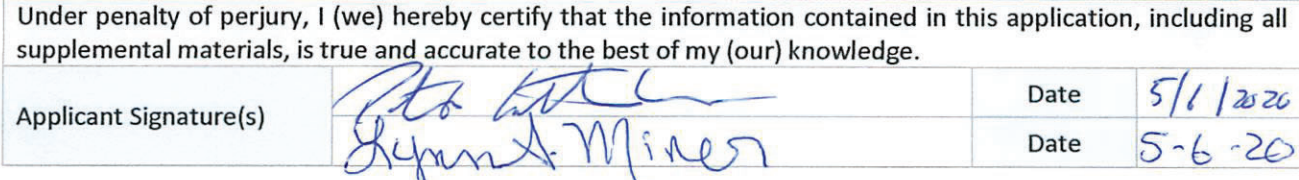 Under penalty of perjury, I (we) hereby certify that the information contained in this application, including all
supplemental materials, is true and accurate to the best of my (our) knowledge.
Applicant Signature(s)
Date 5/1/2020
Lynn A. Miner Date 5-6-20